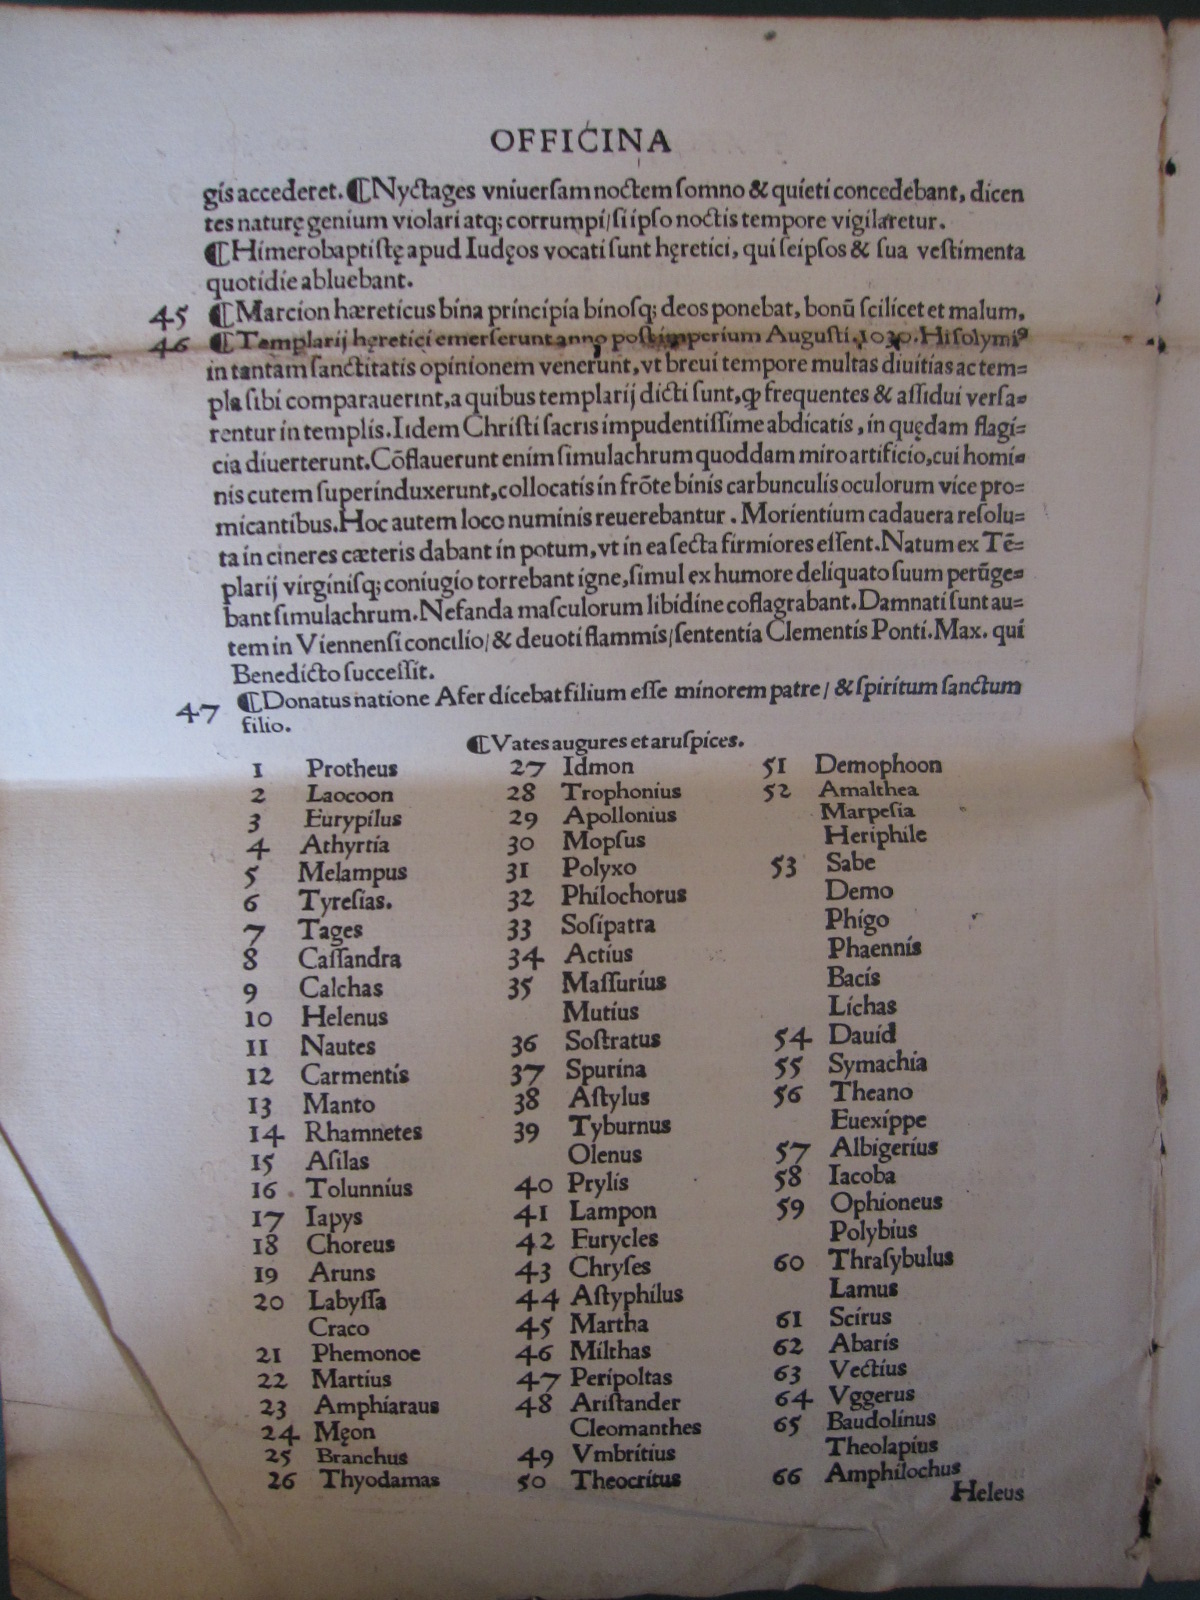 OFFICINA
gis accederet. ¶Nyctages vniuerſam noctem ſomno & quieti concedebant, dicen
tes naturę genium violari atq; corrumpi/ſi ipſo noctis tempore vigilaretur.
¶Himerobaptiſtę apud Iudęos vocati ſunt hęretici, qui ſeipſos & ſua veſtimenta
quotidie abluebant.
45 ¶Marcion hæreticus bina principia binoſq; deos ponebat, bonū ſcilicet et malum,
46 ¶Templarij hęretici emerſerunt anno poſt imperium Auguſti.1030.Hiſolymiꝰ
in tantam ſanctitatis opinionem venerunt, vt breui tempore multas diuitias ac tem=
pla ſibi comparauerint, a quibus templarij dicti ſunt, ꝙ frequentes & aſſidui verſa=
rentur in templis. Iidem Chriſti ſacris impudentiſſime abdicatis, in quędam flagi=
cia diuerterunt. Cōflauerunt enim ſimulachrum quoddam miro artificio, cui homi=
nis cutem ſuperinduxerunt, collocatis in frōte binis carbunculis oculorum vice pro=
micantibus. Hoc autem loco numinis reuerebantur. Morientium cadauera reſolu=
ta in cineres cæteris dabant in potum, vt in ea ſecta firmiores eſſent. Natum ex Tē=
plarij virginiſq; coniugio torrebant igne, ſimul ex humore deliquato ſuum perūge=
bant ſimulachrum. Nefanda maſculorum libidine coflagrabant. Damnati ſunt au=
tem in Viennenſi concilio/ & deuoti flammis/ſententia Clementis Ponti. Max. qui
Benedicto ſucceſſit.
47 ¶Donatus natione Afer dicebat filium eſſe minorem patre/ & ſpiritum ſanctum
filio.
¶Vates augures et aruſpices.
1 Protheus
2 Laocoon
3 Eurypilus
4 Athyrtia
5 Melampus
6 Tyreſias.
7 Tages
8 Caſſandra
9 Calchas
10 Helenus
11 Nautes
12 Carmentis
13 Manto
14 Rhamnetes
15 Aſilas
16 Tolunnius
17 Iapys
18 Choreus
19 Aruns
20 Labyſſa
Craco
21 Phemonoe
22 Martius
23 Amphiaraus
24 Męon
25 Branchus
26 Thyodamas
27 Idmon
28 Trophonius
29 Apollonius
30 Mopſus
31 Polyxo
32 Philochorus
33 Soſipatra
34 Actius
35 Maſſurius
Mutius
36 Soſtratus
37 Spurina
38 Aſtylus
39 Tyburnus
Olenus
40 Prylis
41 Lampon
42 Eurycles
43 Chryſes
44 Aſtyphilus
45 Martha
46 Milthas
47 Peripoltas
48 Ariſtander
Cleomanthes
49 Vmbritius
50 Theocritus
51 Demophoon
52 Amalthea
Marpeſia
Heriphile
53 Sabe
Demo
Phigo
Phaennis
Bacis
Lichas
54 Dauid
55 Symachia
56 Theano
Euexippe
57 Albigerius
58 Iacoba
59 Ophioneus
Polybius
60 Thraſybulus
Lamus
61 Scirus
62 Abaris
63 Vectius
64 Vggerus
65 Baudolinus
Theolapius
66 Amphilochus
Heleus